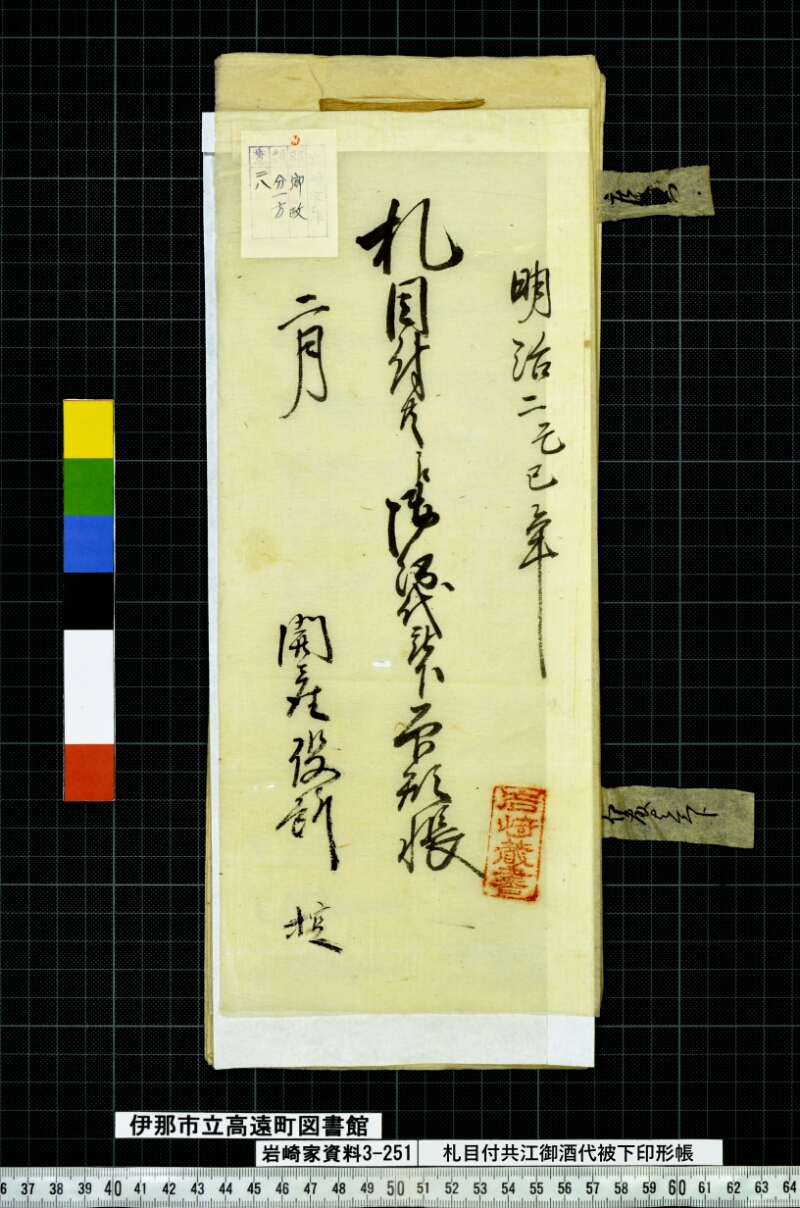 明治二元巳年
札目付共江御酒代被下印形帳
二月
開産役所
掟
岩崎蔵書
郷政
分一方
番
二八
伊那市立高遠町図書館
岩崎家資料3-251
札目付共江御酒代被下印形帳
6 37 38 39 40 41 42 43 44 45 46 47 48 49 50 51 52 53 54 55 56 57 58 59 60 61 62 63 64